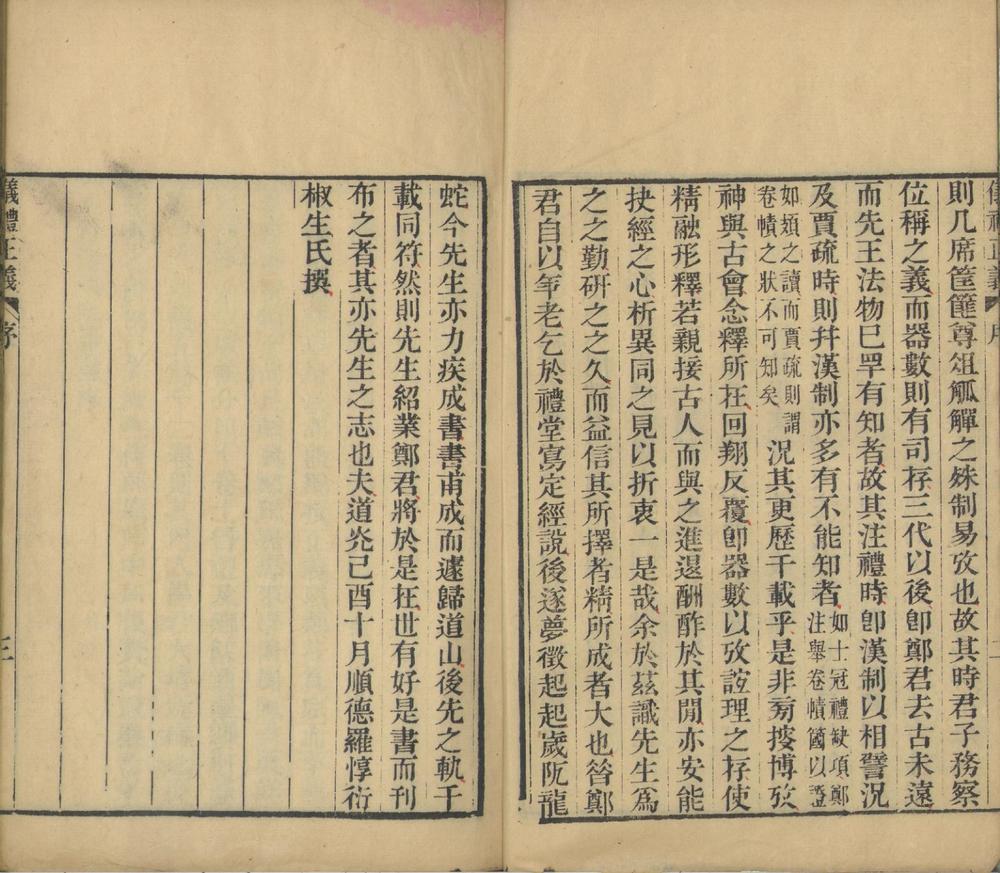 儀禮正義 序 二
則几席筐篚尊俎觚觶之殊制易攷也故其時君子務察
位稱之義而器數則有司存三代以後卽鄭君去古未遠
而先王法物巳罕有知者故其注禮時卽漢制以相譬況
及賈疏時則幷漢制亦多有不能知者如士冠禮缺項鄭注舉卷幘簂以證
如頍之讀而賈疏則謂卷幘之狀不可知矣況其更歷千載乎是非䈂按博攷
神與古會念釋所在回翔反覆卽器數以攷誼理之存使
精融形釋若親接古人而與之進退酬酢於其閒亦安能
抉經之心析異同之見以折衷一是哉余於茲識先生爲
之之勤硏之之久而益信其所擇者精所成者大也昝鄭
君自以年老乞於禮堂寫定經說後遂夢徵起起歲阨龍
蛇今先生亦力疾成書書甫成而遽歸道山後先之軌千
載同符然則先生紹業鄭君將於是在世有好是書而刊
布之者其亦先生之志也夫道光己酉十月順德羅惇衍
椒生氏撰
儀禮正義 序 三